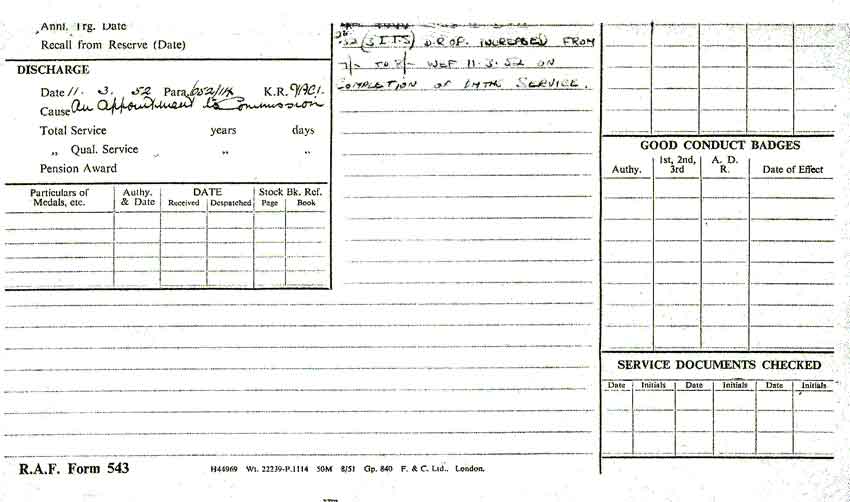 Annl. Trg. Date
Recall from Reserve (Date)
DISCHARGE
Date 11. 3. 52 Para. 652/11A K.R. 9/ACI.
Cause An Appointment to Commission
Total Service years days
„ Qual. Service „ „
Pension Award
Particulars of Medals, etc. Authy. & Date DATE Stock Bk. Ref.
Received Despatched Page Book
(S I.T.S) D.R OF. INCREASED FROM
7/- TO 8/- WEF 11.3.52 ON
COMPLETION OF SERVICE.
GOOD CONDUCT BADGES
Authy. 1st, 2nd, 3rd A. D. R. Date of Effect
SERVICE DOCUMENTS CHECKED
Date Initials Date Initials Date Initials
R.A.F. Form 543
H44969 Wt. 22239-P.1114 50M 8/51 Gp. 840 F. & C. Ltd., London.